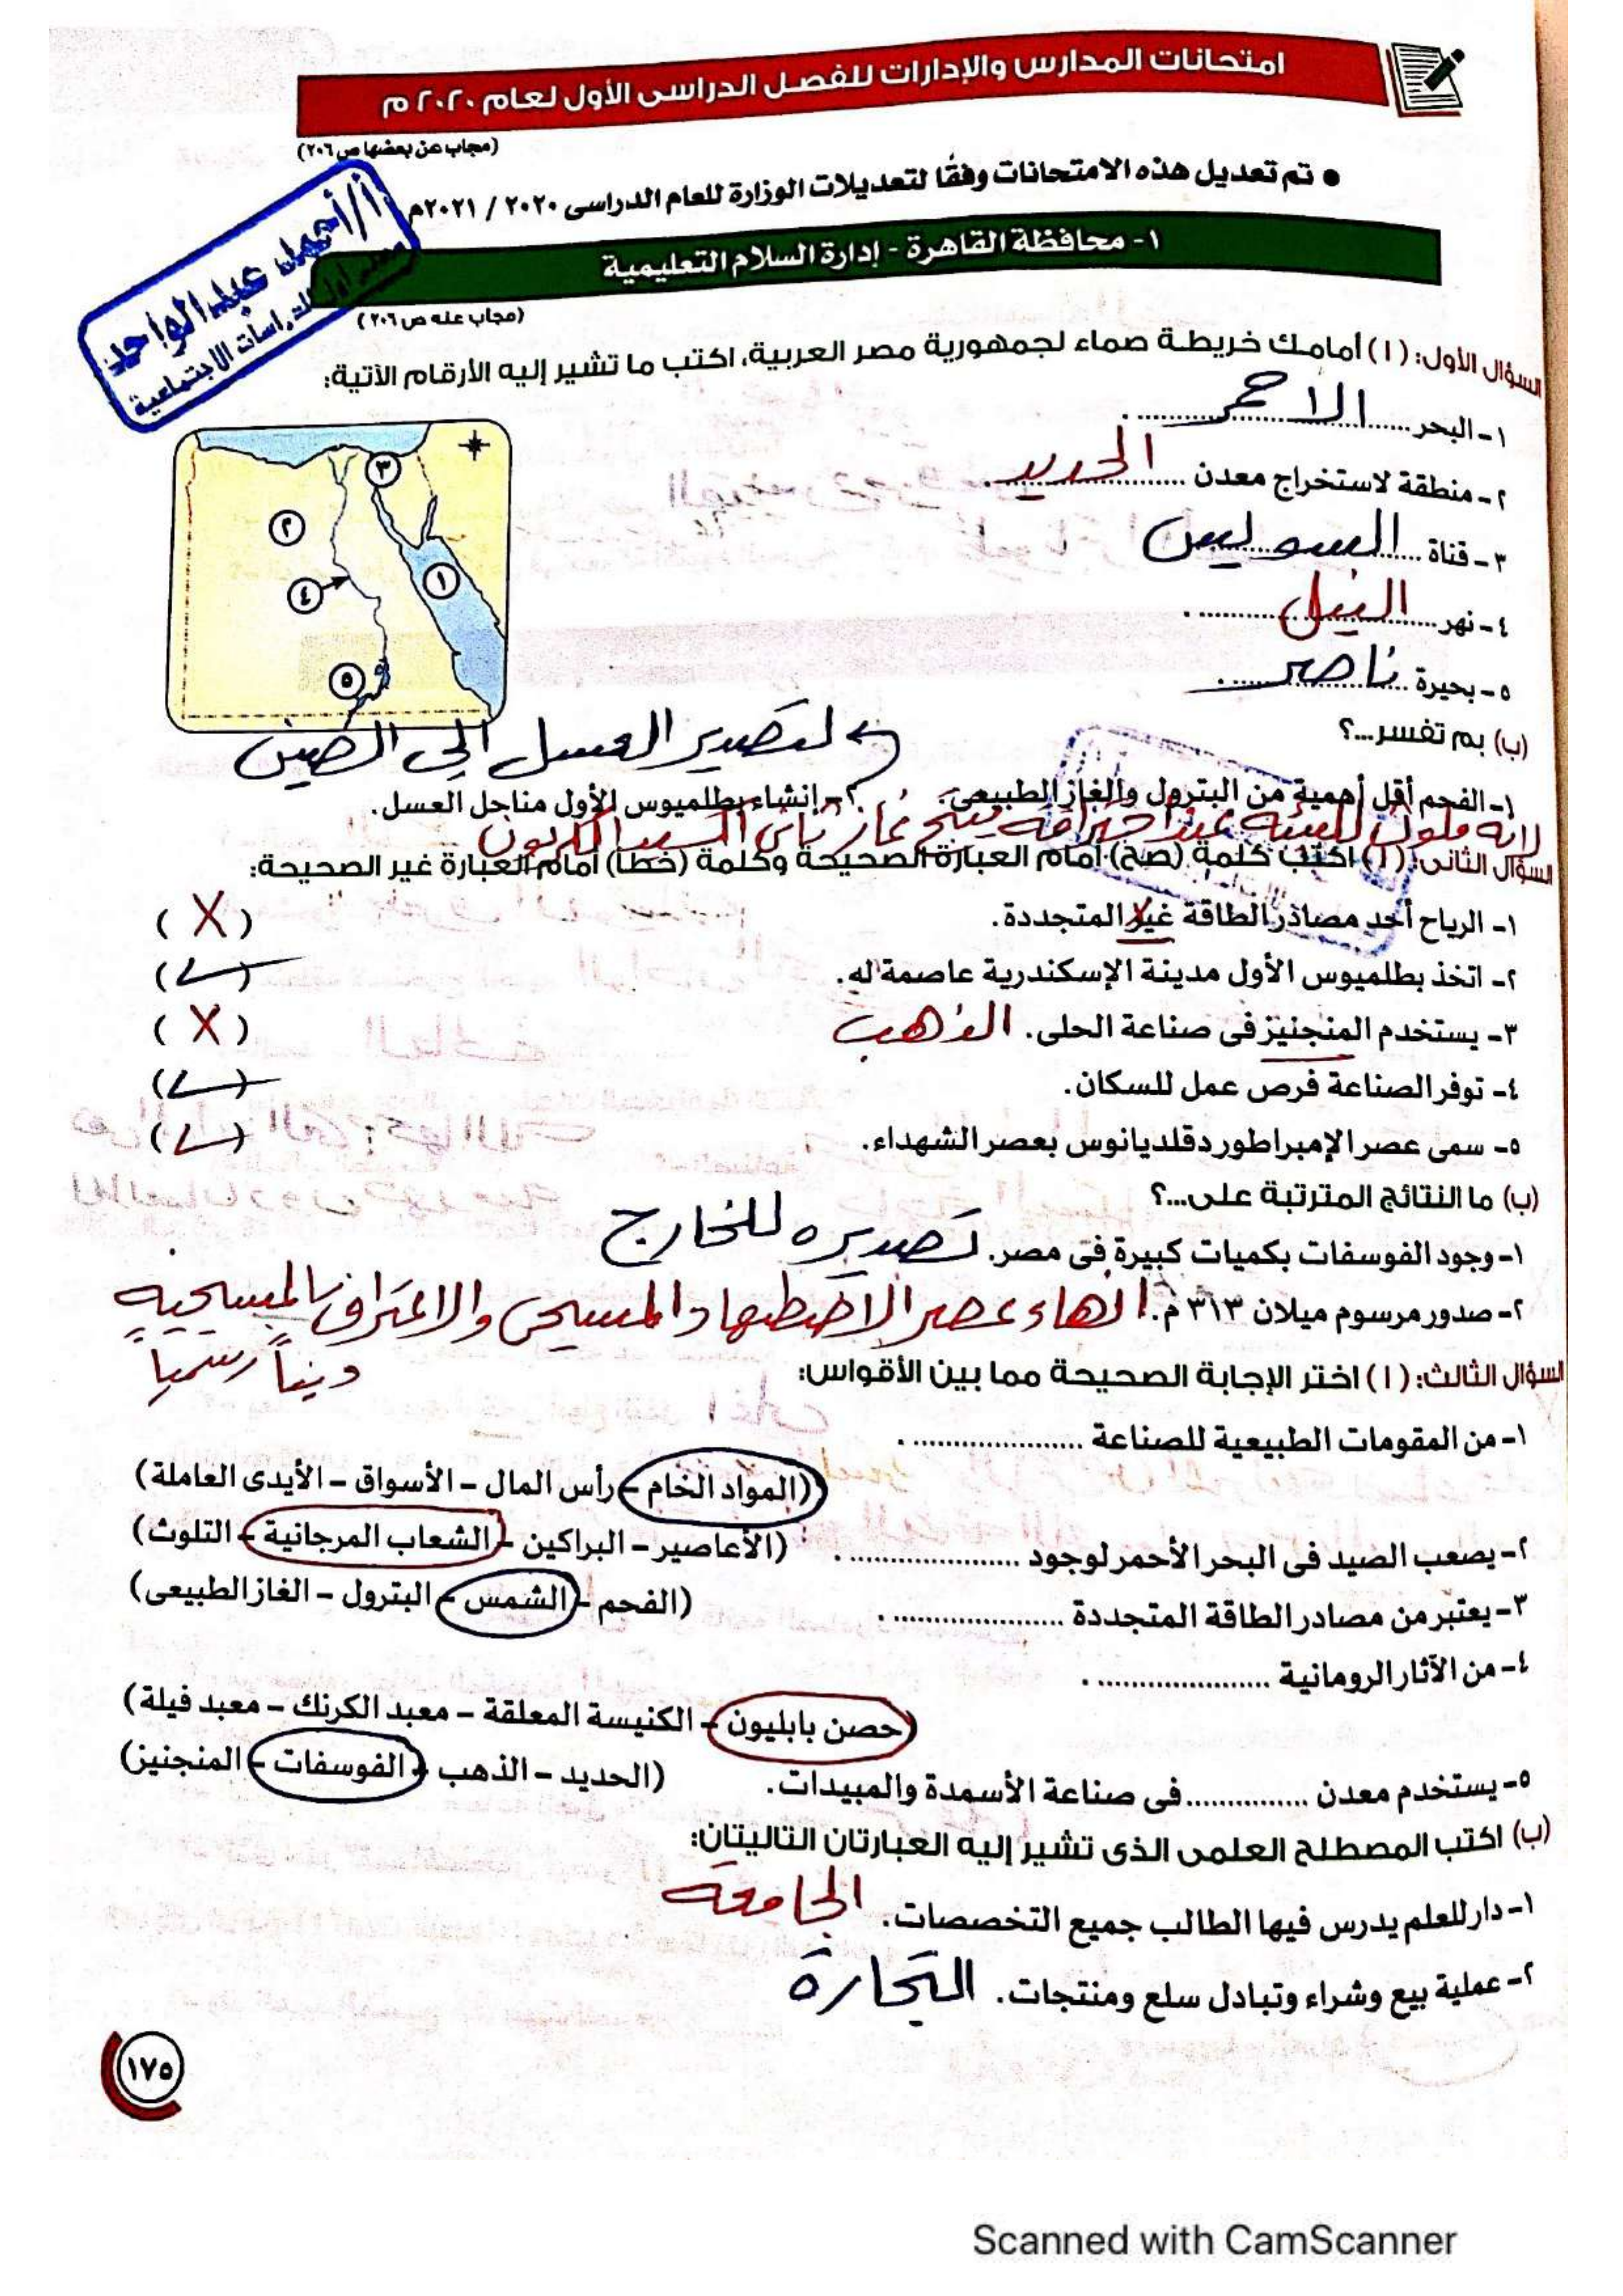 امتحانات المدارس والإدارات للفصل الدراسى الأول لعام ٢٠٢٠ م
(مجاب عن بعضها ص ٢٠٦)
• تم تعديل هذه الامتحانات وفقًا لتعديلات الوزارة للعام الدراسى ٢٠٢٠ / ٢٠٢١م
أ/أحمد عبدالواحد
معلم أول الدراسات الاجتماعية
١- محافظة القاهرة - إدارة السلام التعليمية
(مجاب عنه ص ٢٠٦)
السؤال الأول: (١) أمامك خريطة صماء لجمهورية مصر العربية، اكتب ما تشير إليه الأرقام الآتية:
١- البحر الاحمر
٢- منطقة لاستخراج معدن الحديد
٣- قناة السويس
٤- نهر النيل
٥- بحيرة ناصر
٣
٢
١
٤
٥
(ب) بم تفسر...؟
لتصدير العسل الى الصين
١- الفحم أقل أهمية من البترول والغاز الطبيعى. ٢- إنشاء بطلميوس الأول مناحل العسل.
لانه ملوث للبيئه عند احتراقه ينتج غاز ثانى اكسيد الكربون
السؤال الثانى: (١) اكتب كلمة (صح) أمام العبارة الصحيحة وكلمة (خطأ) أمام العبارة غير الصحيحة:
١- الرياح أحد مصادر الطاقة غير المتجددة. (X)
٢- اتخذ بطلميوس الأول مدينة الإسكندرية عاصمة له. (✓)
٣- يستخدم المنجنيز فى صناعة الحلى. الذهب (X)
٤- توفر الصناعة فرص عمل للسكان. (✓)
٥- سمى عصر الإمبراطور دقلديانوس بعصر الشهداء. (✓)
(ب) ما النتائج المترتبة على...؟
١- وجود الفوسفات بكميات كبيرة فى مصر. تصديره للخارج
٢- صدور مرسوم ميلان ٣١٣ م. انهاء عصر الاضطهاد المسيحى والاعتراف بالمسيحيه
ديناً رسمياً
السؤال الثالث: (١) اختر الإجابة الصحيحة مما بين الأقواس:
١- من المقومات الطبيعية للصناعة .....................
(المواد الخام - رأس المال - الأسواق - الأيدى العاملة)
٢- يصعب الصيد فى البحر الأحمر لوجود ..................... (الأعاصير - البراكين - الشعاب المرجانية - التلوث)
٣- يعتبر من مصادر الطاقة المتجددة ..................... (الفحم - الشمس - البترول - الغاز الطبيعى)
٤- من الآثار الرومانية .....................
(حصن بابليون - الكنيسة المعلقة - معبد الكرنك - معبد فيلة)
٥- يستخدم معدن ............... فى صناعة الأسمدة والمبيدات. (الحديد - الذهب - الفوسفات - المنجنيز)
(ب) اكتب المصطلح العلمى الذى تشير إليه العبارتان التاليتان:
١- دار للعلم يدرس فيها الطالب جميع التخصصات. الجامعة
٢- عملية بيع وشراء وتبادل سلع ومنتجات. التجارة
١٧٥
Scanned with CamScanner